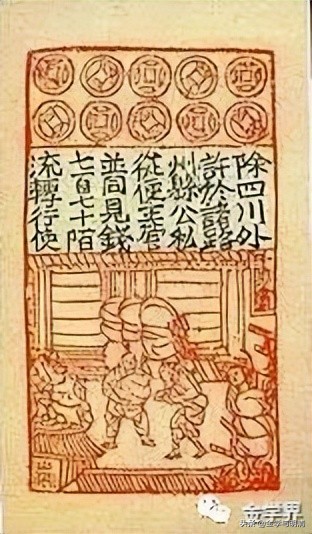 除四川外
許於諸路
州縣公私
從便主管
並同見錢
七百七十陌
流轉行使
金学界
头条@金学与明清